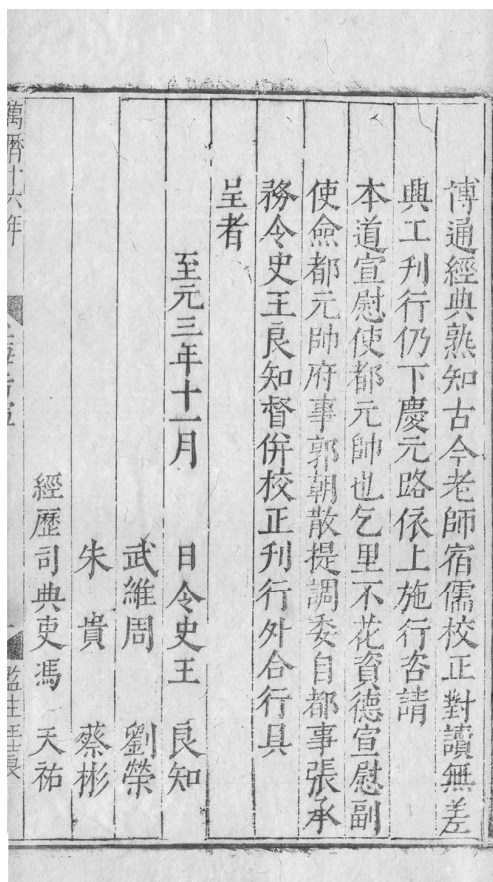 博通經典熟知古今老師宿儒校正對讀無差
興工刊行仍下慶元路依上施行咨請
本道宣慰使都元帥也乞里不花資德宣慰副
使僉都元帥府事郭朝散提調委自都事張承
務令史王良知督併校正刊行外合行具
呈者
至元三年十一月　日令史王　良知
武維周　劉榮
朱　貴　蔡彬
經歷司典吏馮　天祐
萬曆十六年